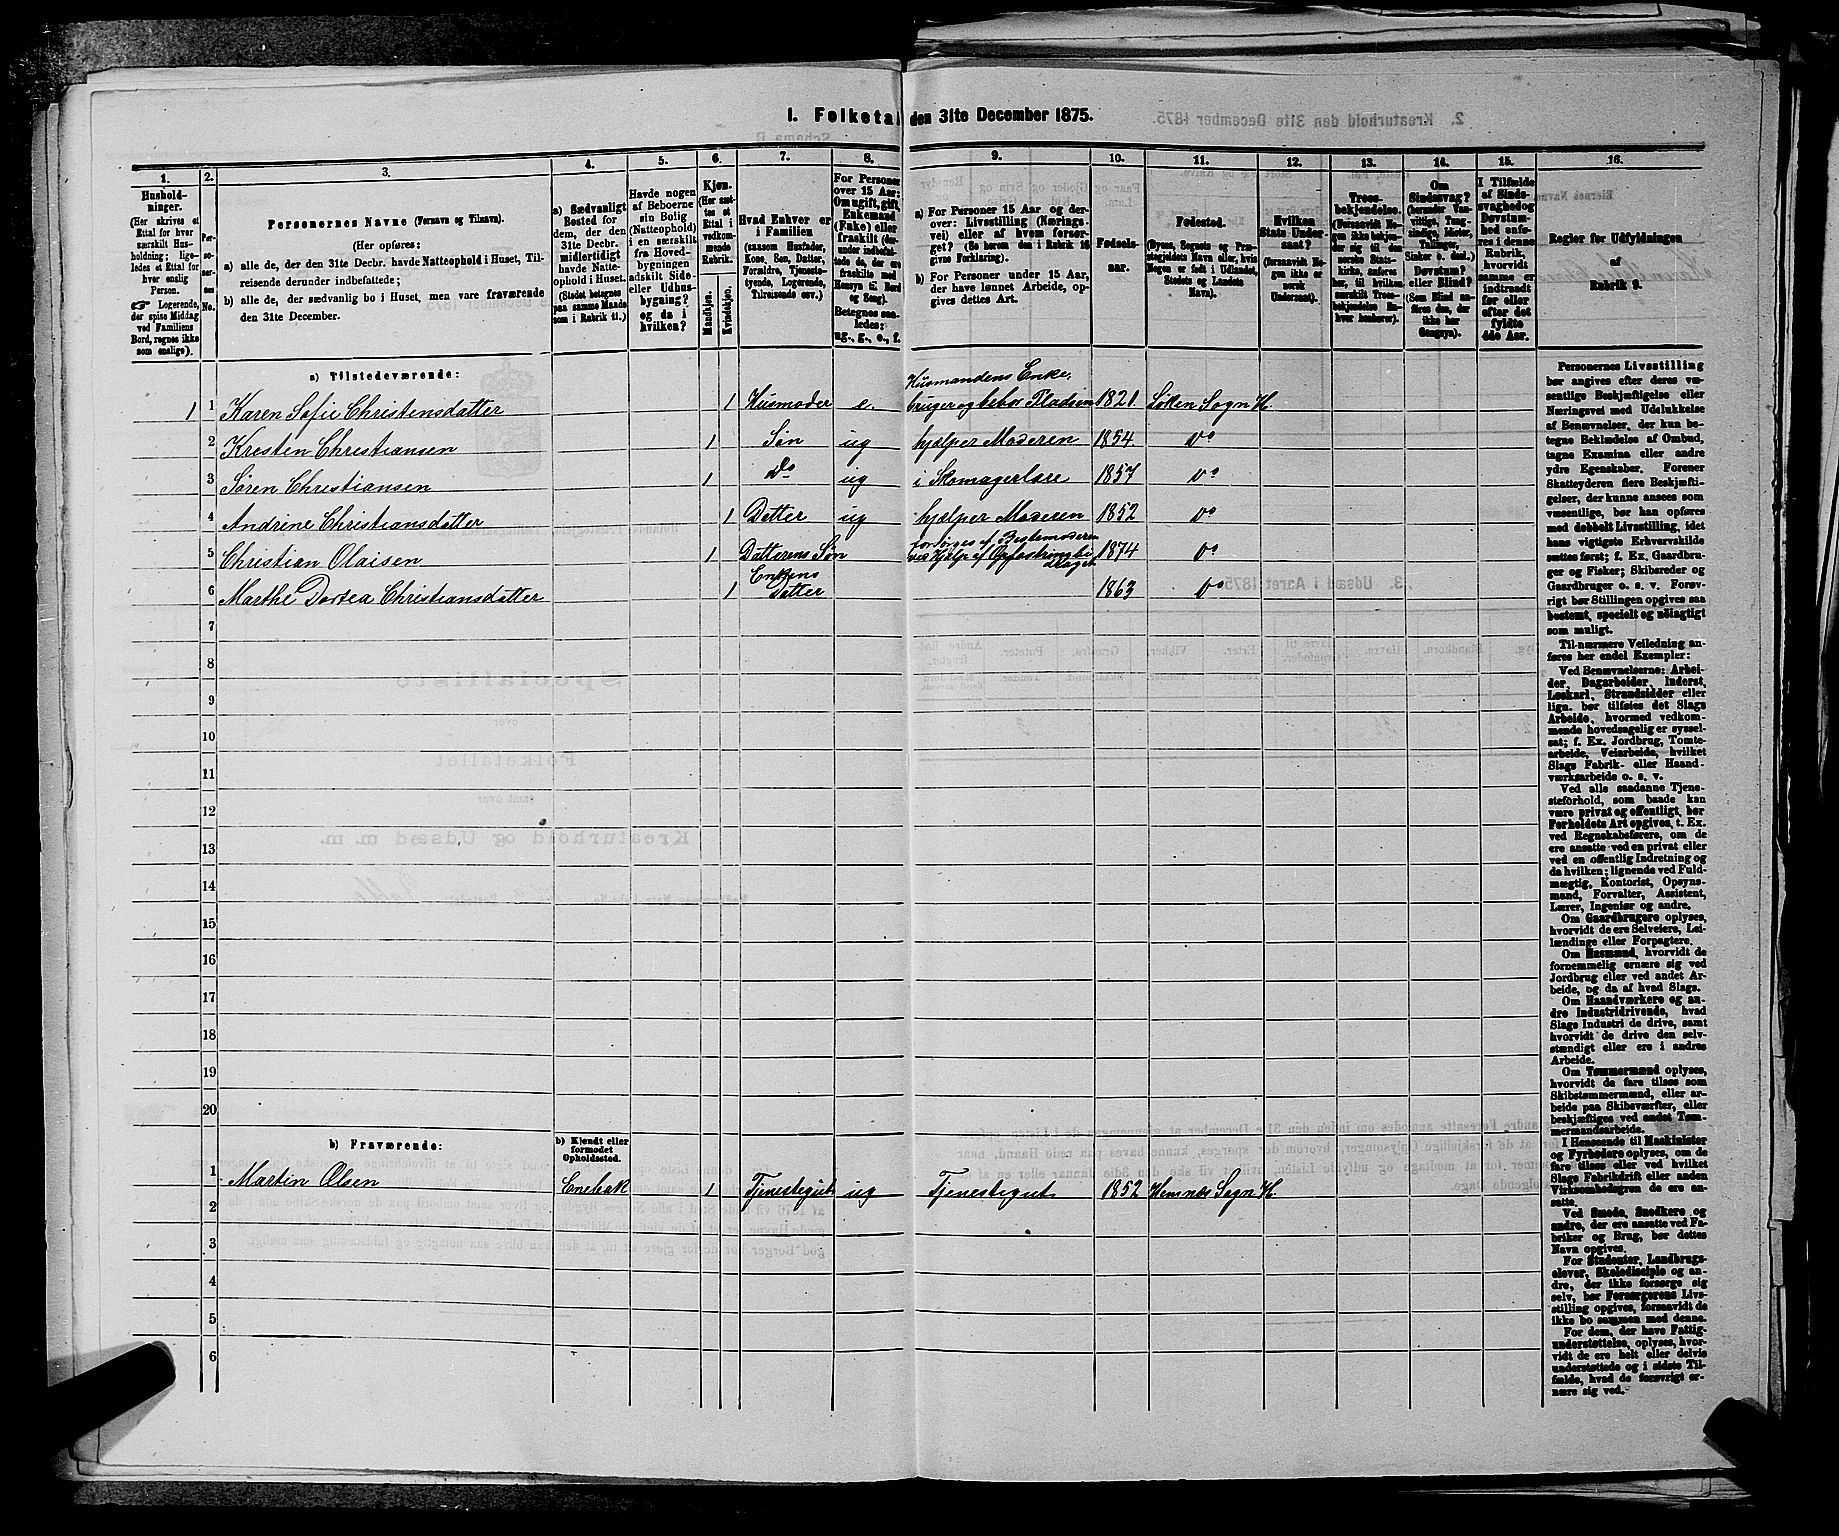 1. Folketal den 31te December 1875.
1. 2. 3. 4. 5. 6. 7. 8. 9. 10. 11. 12. 13. 14. 15. 16.
Hushold-
ninger.
(Her skrives et
Ettal for hver
særskilt Hus-
holdning; lige-
ledes et Ettal for
hver enslig
Person.
☞ Logerende,
der spise Middag
ved Familiens
Bord, regnes ikke
som enslige).
Per-
so-
ner-
nes
No.
Personernes Navne (Fornavn og Tilnavn).
(Her opføres:
a) alle de, der den 31te Decbr. havde Natteophold i Huset, Til-
reisende derunder indbefattede;
b) alle de, der sædvanlig bo i Huset, men vare fraværende
den 31te December.
a) Sædvanligt
Bosted for
dem, der den
31te Decbr.
midlertidigt
havde Natte-
ophold i Huset.
(Stedet betegnes
paa samme Maade
som i Rubrik 11.)
Havde nogen
af Beboerne
sin Bolig
(Natteophold)
i en særskilt
fra Hoved-
bygningen
adskilt Side-
eller Udhus-
bygning?
og da i
hvilken?
Kjøn.
(Her sæt-
tes et
Ettal i
vedkom-
mende
Rubrik.
Mandkjøn.
Kvindekjøn.
Hvad Enhver er
i Familien
(saasom Husfader,
Kone, Søn, Datter,
Forældre, Tjeneste-
tyende, Logerende,
Tilreisende osv.)
For Personer
over 15 Aar:
Om ugift, gift,
Enkemand
(Enke) eller
fraskilt (der-
under indbefat-
tede de, der ere
fraskilte med
Hensyn til Bord
og Seng).
Betegnes saa-
ledes:
ug., g., e., f.
a) For Personer 15 Aar og der-
over: Livsstilling (Nærings-
vei) eller af hvem forsør-
get? (Se herom den i Rubrik 16
givne Forklaring).
b) For Personer under 15 Aar,
der have lønnet Arbeide, op-
gives dettes Art.
Fødsels-
aar.
Fødested.
(Byens, Sognets og Præ-
stegjeldets Navn eller, hvis
Nogen er født i Udlandet,
Stedets og Landets
Navn).
Hvilken
Stats Under-
saat?
(forsaavidt No-
gen ikke er
norsk
Undersaat).
Troes-
bekjendelse.
(Forsaavidt No-
gen ikke bekjen-
der sig til den
norske Stats-
kirke, anføres
her, til hvilken
særskilt Troes-
bekjendelse En-
hver henhører).
Om
Sindssvag?
(herunder Van-
vittige, Tung-
sindige, Idioter,
Tullinger,
Sinker o. desl.)
Døvstum?
eller Blind?
(Som Blind an-
føres den, der
ikke har
Gangsyn).
I Tilfælde
af Sinds-
svaghed og
Døvstum-
hed anfø-
res i denne
Rubrik,
hvorvidt
samme er
indtraadt
før eller
efter det
fyldte
4de Aar.
Regler for Udfyldningen
af
Rubrik 9.
a) Tilstedeværende:
1 1 Karen Sofie Christensdatter 1 Husmoder e. Husmandens Enke, bruger og bebor Pladsen 1821 Søken Sogn H.
2 Kresten Christiansen 1 Søn ug hjælper Moderen 1854 do
3 Søren Christiansen 1 do ug i Skomagerlære 1857 do
4 Andrine Christiansdatter 1 Datter ug hjælper Moderen 1852 do
5 Christian Olaisen 1 Datterens Søn forsørges af Bestemoderen ved Hjælp af Opfostringsbidraget 1874 do
6 Marthe Dortea Christiansdatter 1 Enkens Datter 1863 do
7
8
9
10
11
12
13
14
15
16
17
18
19
20
b) Fraværende:
b) Kjendt eller
formodet
Opholdssted.
1 Martin Olsen Enebak 1 Tjenestegut ug Tjenestegut 1852 Hemnæs Sogn H.
2
3
4
5
6
Personernes Livsstilling
bør angives efter deres væ-
sentlige Beskjæftigelse eller
Næringsvei med Udelukkelse
af Benævnelser, der kun be-
tegne Beklædelse af Ombud,
tagne Examina eller andre
ydre Egenskaber. Forener
Skatteyderen flere Beskjæfti-
gelser, der kunne ansees som
væsentlige, bør han opføres
med dobbelt Livsstilling, idet
hans vigtigste Erhvervskilde
sættes først; f. Ex. Gaardbru-
ger og Fisker; Skibsreder og
Gaardbruger o. s. v. Forøv-
rigt bør Stillingen opgives saa
bestemt, specielt og nøiagtigt
som muligt.
Til nærmere Veiledning an-
føres her endel Exempler:
Ved Benævnelserne: Arbei-
der, Dagarbeider, Inderst,
Løskarl, Strandsidder eller
lign. bør tilføies det Slags
Arbeide, hvormed vedkom-
mende hovedsagelig er syssel-
sat; f. Ex. Jordbrug, Tomte-
arbeide, Veiarbeide, hvilket
Slags Fabrik- eller Haand-
værksarbeide o. s. v.
Ved alle saadanne Tjene-
steforhold, som baade kan
være privat og offentligt, bør
Forholdets Art opgives, t. Ex.
ved Regnskabsførere, om de
ere ansatte ved en privat eller
ved en offentlig Indretning og
da hvilken; lignende ved Fuld-
mægtig, Kontorist, Opsyns-
mand, Forvalter, Assistent,
Lærer, Ingeniør og andre.
Om Gaardbrugere oplyses,
hvorvidt de ere Selveiere, Lei-
lændinge eller Forpagtere.
Om Husmænd, hvorvidt de
fornemmelig ernære sig ved
Jordbrug eller ved andet Ar-
beide, og da af hvad Slags.
Om Haandværkere og an-
dre Industridrivende, hvad
Slags Industri de drive, samt
hvorvidt de drive den selv-
stændigt eller ere i andres
Arbeide.
Om Tømmermænd oplyses,
hvorvidt de fare tilsøs som
Skibstømmermænd, eller ar-
beide paa Skibsværfter, eller
beskjæftiges ved andet Tøm-
mermandsarbeide.
I Henseende til Maskinister
og Fyrbødere oplyses, om de
fare tilsøs eller ved hvilket
Slags Fabrikdrift eller anden
Virksomhedsgren de ere an-
satte.
Ved Smede, Snedkere og
andre, der ere ansatte ved Fa-
briker og Brug, bør dettes
Navn opgives.
For Studenter, Landbrugs-
elever, Skoledisciple og an-
dre, der ikke forsørge sig
selv, bør Forsørgerens Livs-
stilling opgives, forsaavidt de
ikke bo sammen med denne.
For dem, der have Fattig-
understøttelse, oplyses, hvor-
vidt de ere helt eller delvis
understøttede og i sidste Til-
fælde, hvad de forøvrigt er-
nære sig ved.